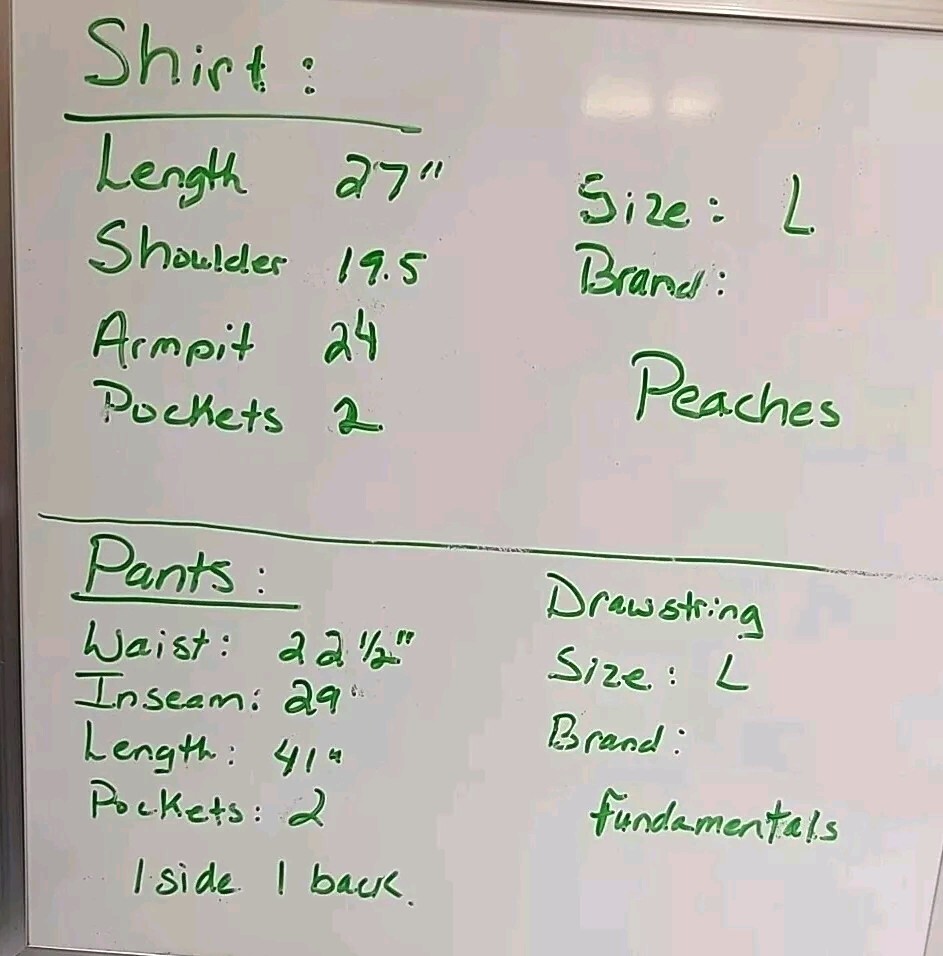 Shirt:
Length 27"
Shoulder 19.5
Armpit 24
Pockets 2
Size: L
Brand:
Peaches
Pants:
Waist: 22 1/2"
Inseam: 29"
Length: 41"
Pockets: 2
1 side 1 back.
Drawstring
Size: L
Brand:
fundamentals